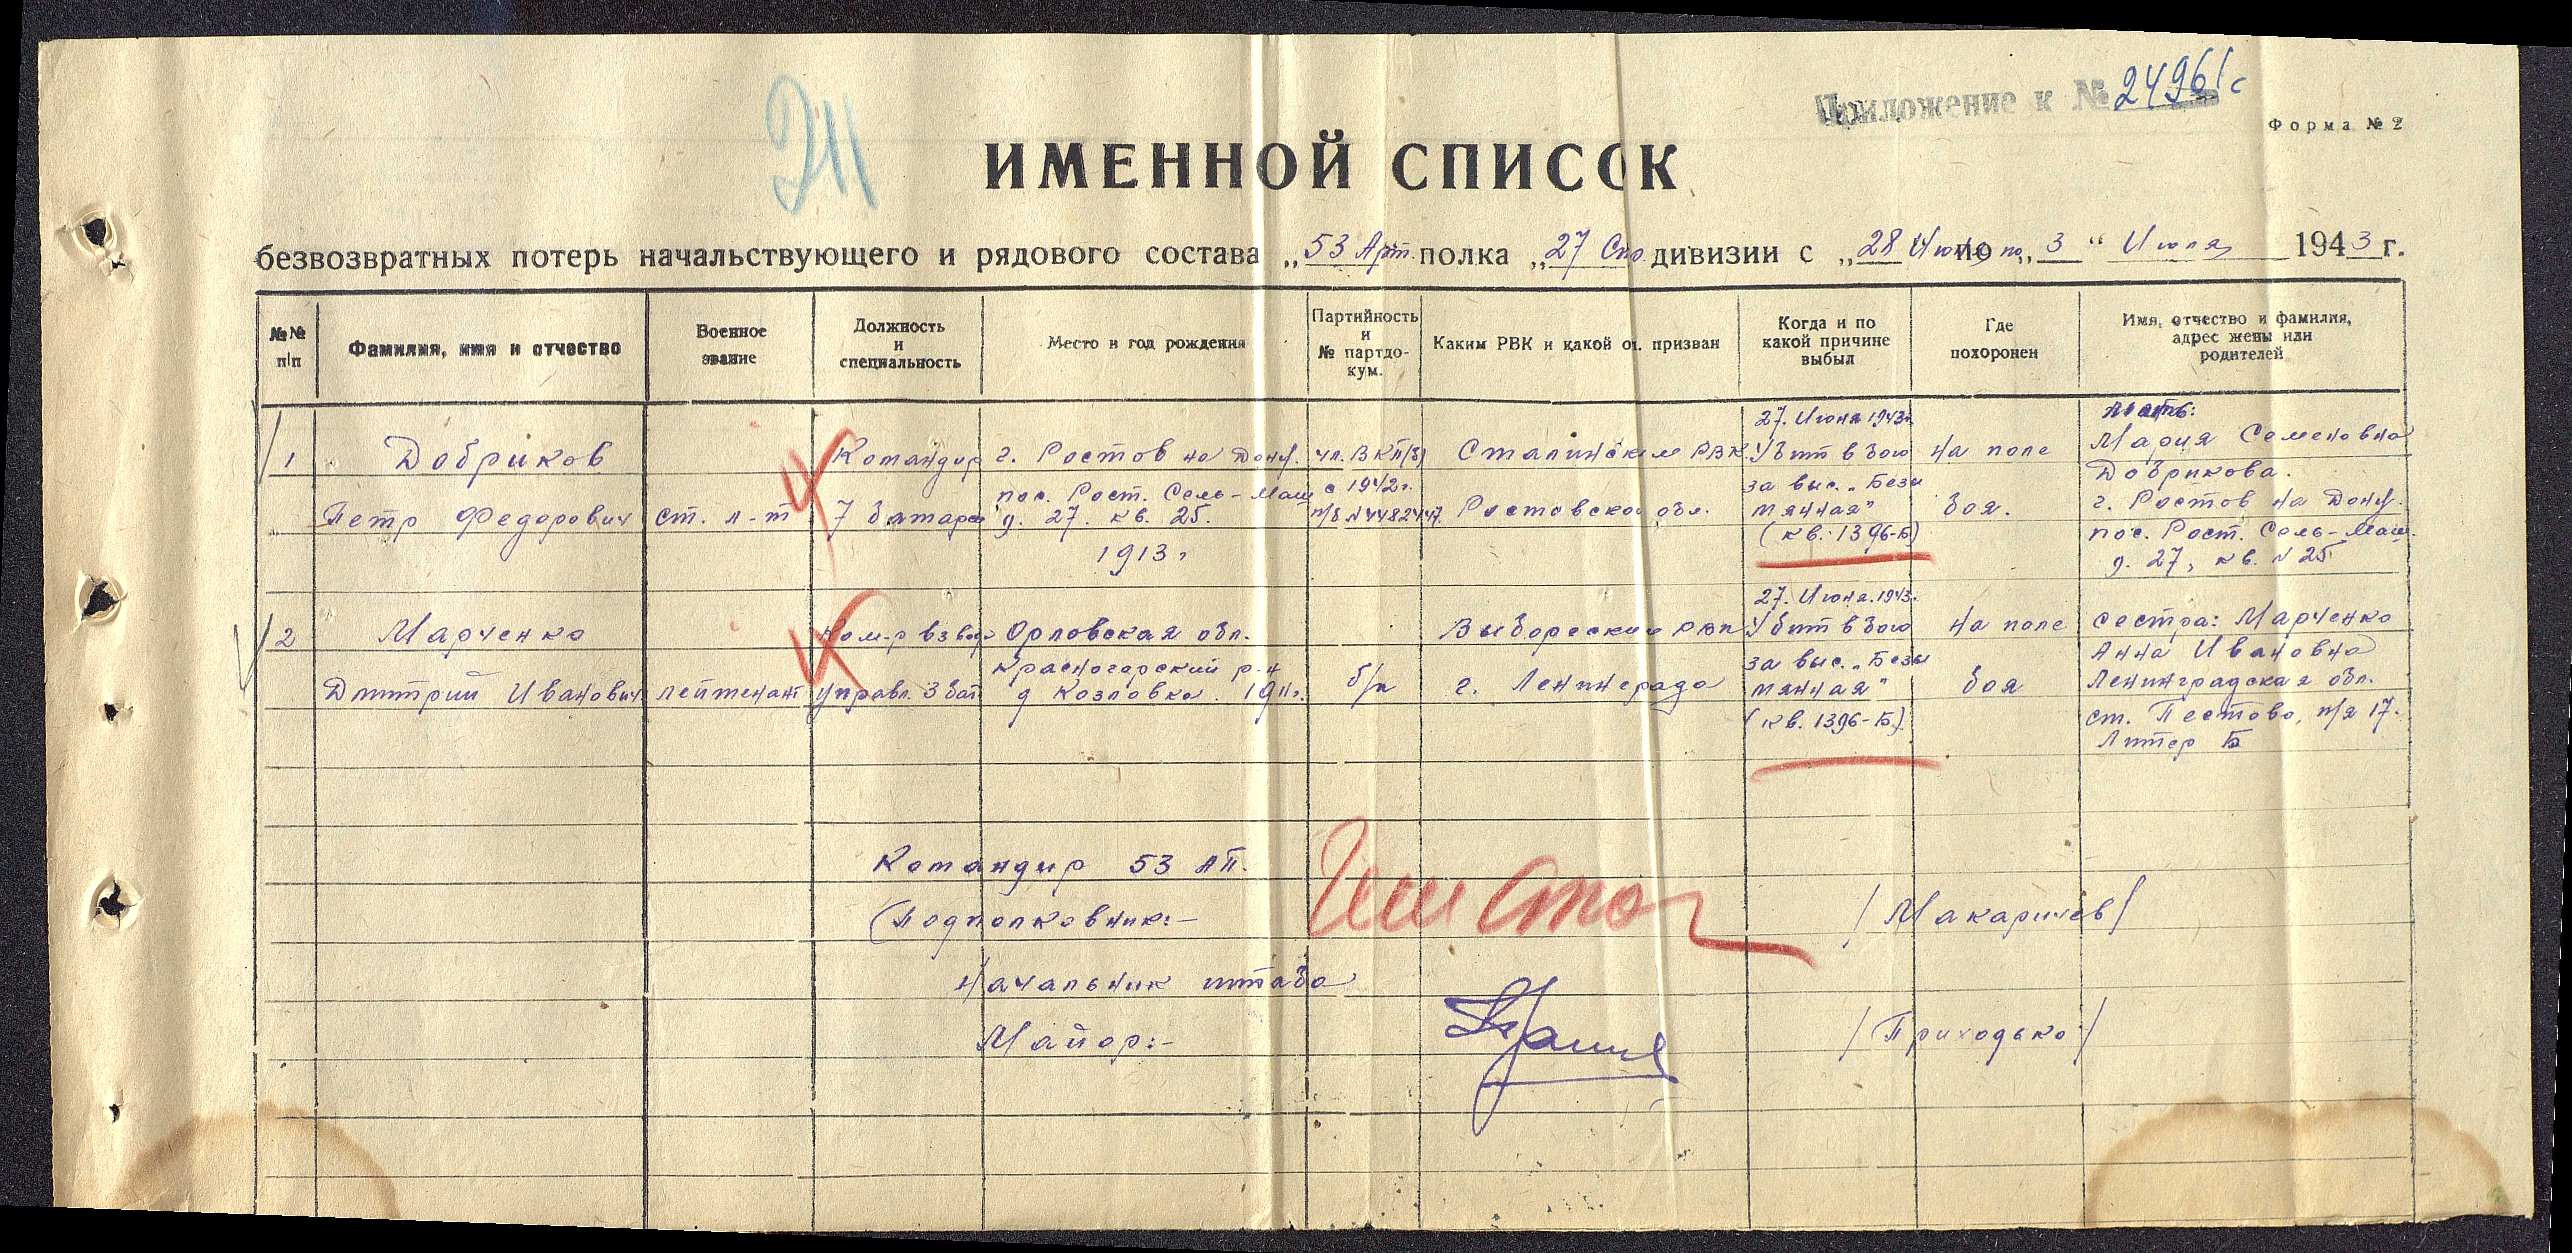 Приложение к № 24961с
Форма № 2
ИМЕННОЙ СПИСОК
безвозвратных потерь начальствующего и рядового состава „53 Арт. полка „27 дивизии с „28 Июня по „3“ Июля 1943 г.
№№ п/п
Фамилия, имя и отчество
Военное звание
Должность и специальность
Место и год рождения
Партийность и № партдокум.
Каким РВК и какой об. призван
Когда и по какой причине выбыл
Где похоронен
Имя, отчество и фамилия, адрес жены или родителей
1
Добриков
Петр Федорович
ст. л-т
Командир
7 батареи
г. Ростов на Дону.
пос. Рост. Сель-Маш
д. 27. кв. 25.
1913г
чл. ВКП(б)
с 1942г.
п/б №4482447.
Сталинским РВК
Ростовской обл.
27. Июня 1943г.
Убит в бою
за выс. „Безы
мянная"
(кв. 1396-Б)
На поле
боя.
мать:
Мария Семеновна
Добрикова.
г. Ростов на Дону.
пос. Рост. Сель-Маш.
д. 27, кв. №25
2
Марченко
Дмитрий Иванович
лейтенант
Ком-р взвод
управл. 3 бат
Орловская обл.
Красногорский р-н
д Козловка. 1911г.
б/п
Выборгским РВК
г. Ленинграда
27. Июня. 1943г.
Убит в бою
за выс. „Безы
мянная"
(кв. 1396-Б).
На поле
боя
сестра: Марченко
Анна Ивановна
Ленинградская обл.
ст. Пестово, п/я 17.
Литер Б
Командир 53 АП.
Подполковник:-
/Макаричев/
Начальник штаба
Майор:-
/Приходько/